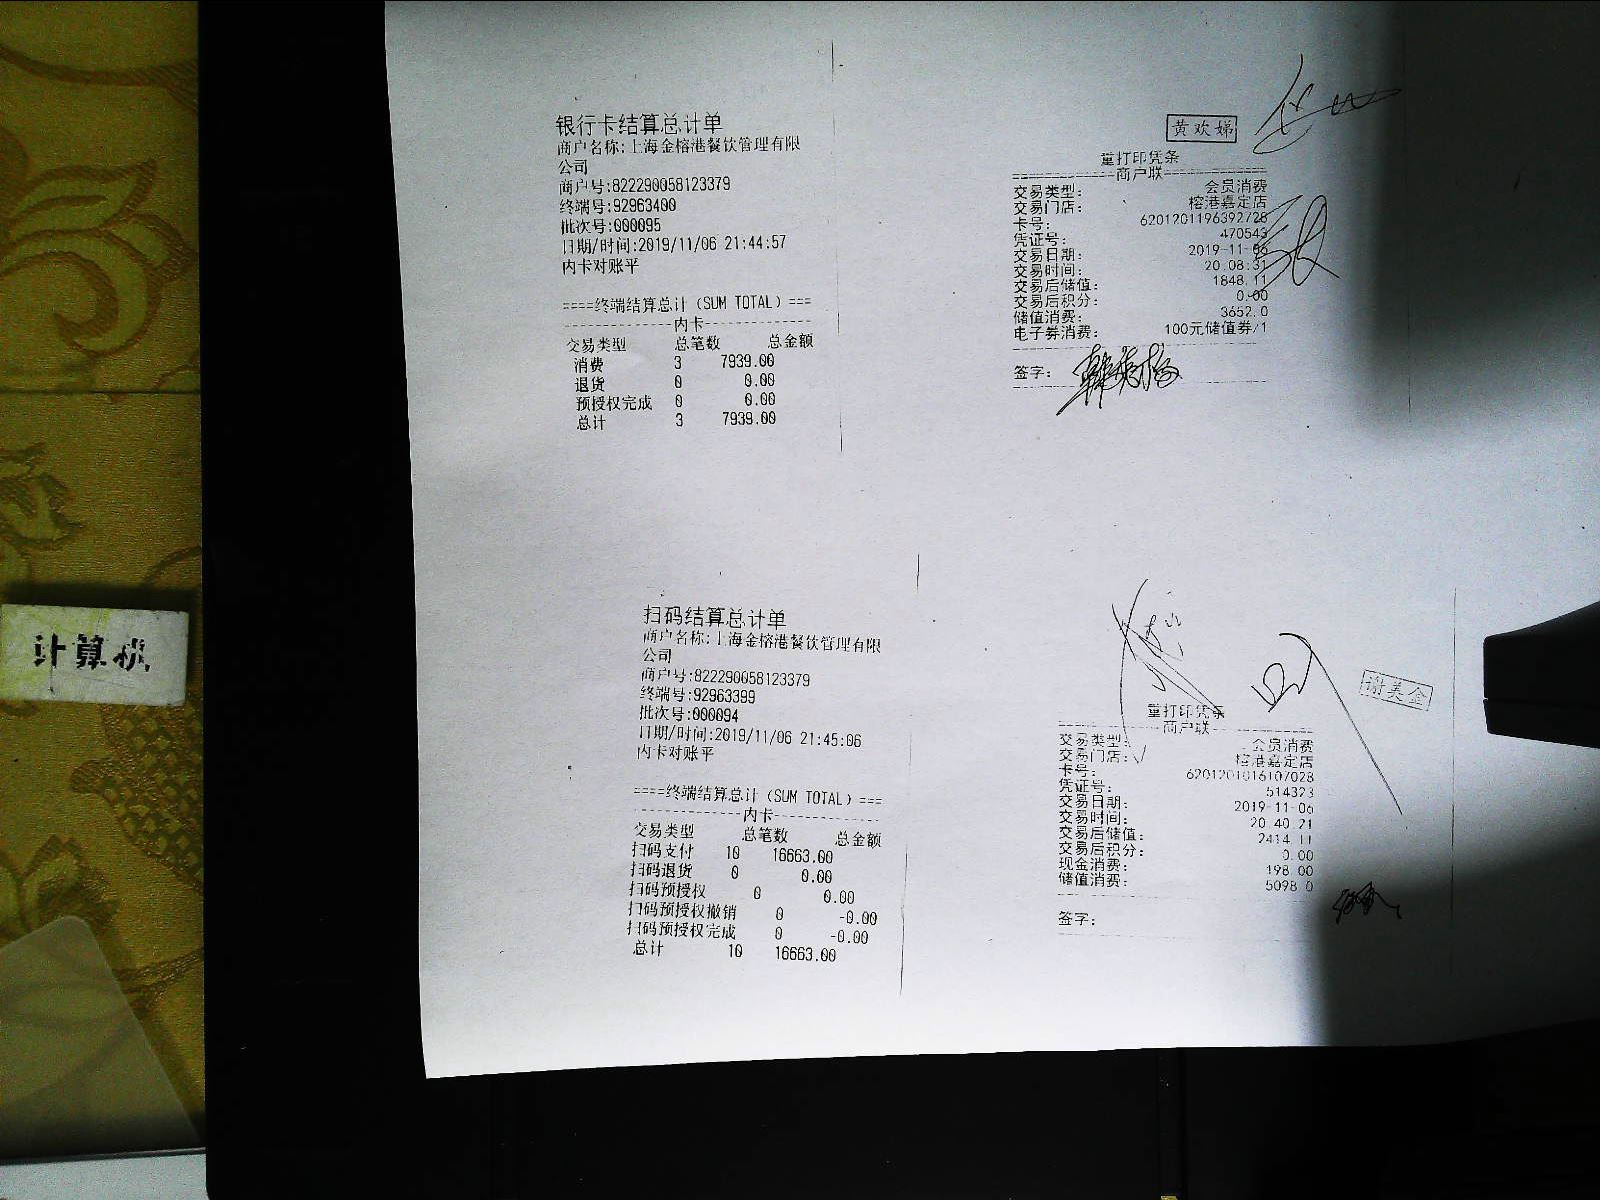 银行卡结算总计单
商户名称:上海金榕港餐饮管理有限
公司
商户号:822290058123379
终端号:92963400
批次号:000095
日期/时间:2019/11/06 21:44:57
内卡对账平
====终端结算总计（SUM TOTAL）===
-------------内卡-------------
交易类型 总笔数 总金额
消费 3 7939.00
退货 0 0.00
预授权完成 0 0.00
总计 3 7939.00
黄欢娣
重打印凭条
------------商户联------------
交易类型: 会员消费
交易门店: 榕港嘉定店
卡号: 6201201196392728
凭证号: 470543
交易日期: 2019-11-06
交易时间: 20:08:31
交易后储值: 1848.11
交易后积分: 0.00
储值消费: 3652.0
电子券消费: 100元储值券/1
签字:
扫码结算总计单
商户名称:上海金榕港餐饮管理有限
公司
商户号:822290058123379
终端号:92963399
批次号:000094
日期/时间:2019/11/06 21:45:06
内卡对账平
====终端结算总计（SUM TOTAL）===
-------------内卡-------------
交易类型 总笔数 总金额
扫码支付 10 16663.00
扫码退货 0 0.00
扫码预授权 0 0.00
扫码预授权撤销 0 -0.00
扫码预授权完成 0 -0.00
总计 10 16663.00
谢美金
重打印凭条
------------商户联------------
交易类型: 会员消费
交易门店: 榕港嘉定店
卡号: 6201201016107028
凭证号: 514323
交易日期: 2019-11-06
交易时间: 20:40:21
交易后储值: 2414.11
交易后积分: 0.00
现金消费: 198.00
储值消费: 5098.0
签字:
计算机